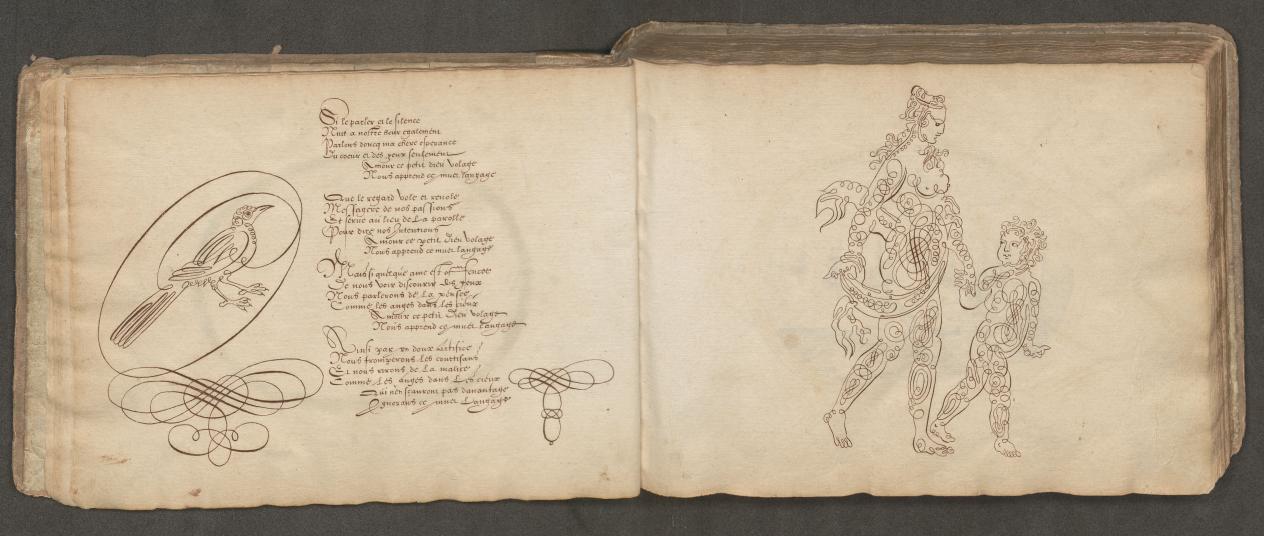 Si le parler et le silence
Nuit a nostre heur egalement
Parlons doncq ma chere esperance
Du coeur et des yeux seulement
Amour ce petit dieu volage
Nous apprend ce muet langage
Que le regard vole et revole
Messagere de nos passions
Et serve au lieu de La parolle
Pour dire nos Intentions
Amour ce petit dieu volage
Nous apprend ce muet langage
Mais si quelque ame est offencee
De nous voir discourir des yeux
Nous parlerons de La pensee
Comme les anges dans les cieux
Amour ce petit Dieu volage
Nous apprend ce muet langage
Ainsi par un doux Artifice
Nous tromperons les courtisans
Et nous rirons de La malice
Comme Les anges dans Les cieux
Qui n'en scauront pas davantage
Ignorans ce muet Langage